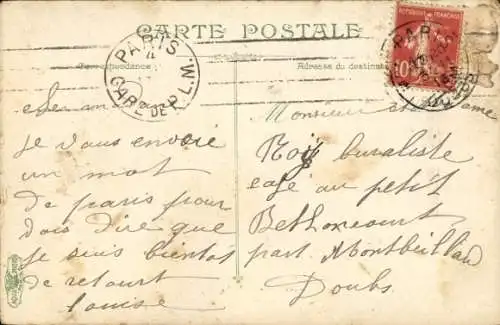 CARTE POSTALE
Correspondance
Adresse du destinataire
PARIS
GARE DE P.L.M.
RÉPUBLIQUE FRANÇAISE
10
PARIS
je vous envoie
un mot
de paris pour
vous dire que
je suis bientot
de retour
Louise
Monsieur et Madame
Roy buraliste
café au petit
Bethoncourt
par Montbeillard
Doubs